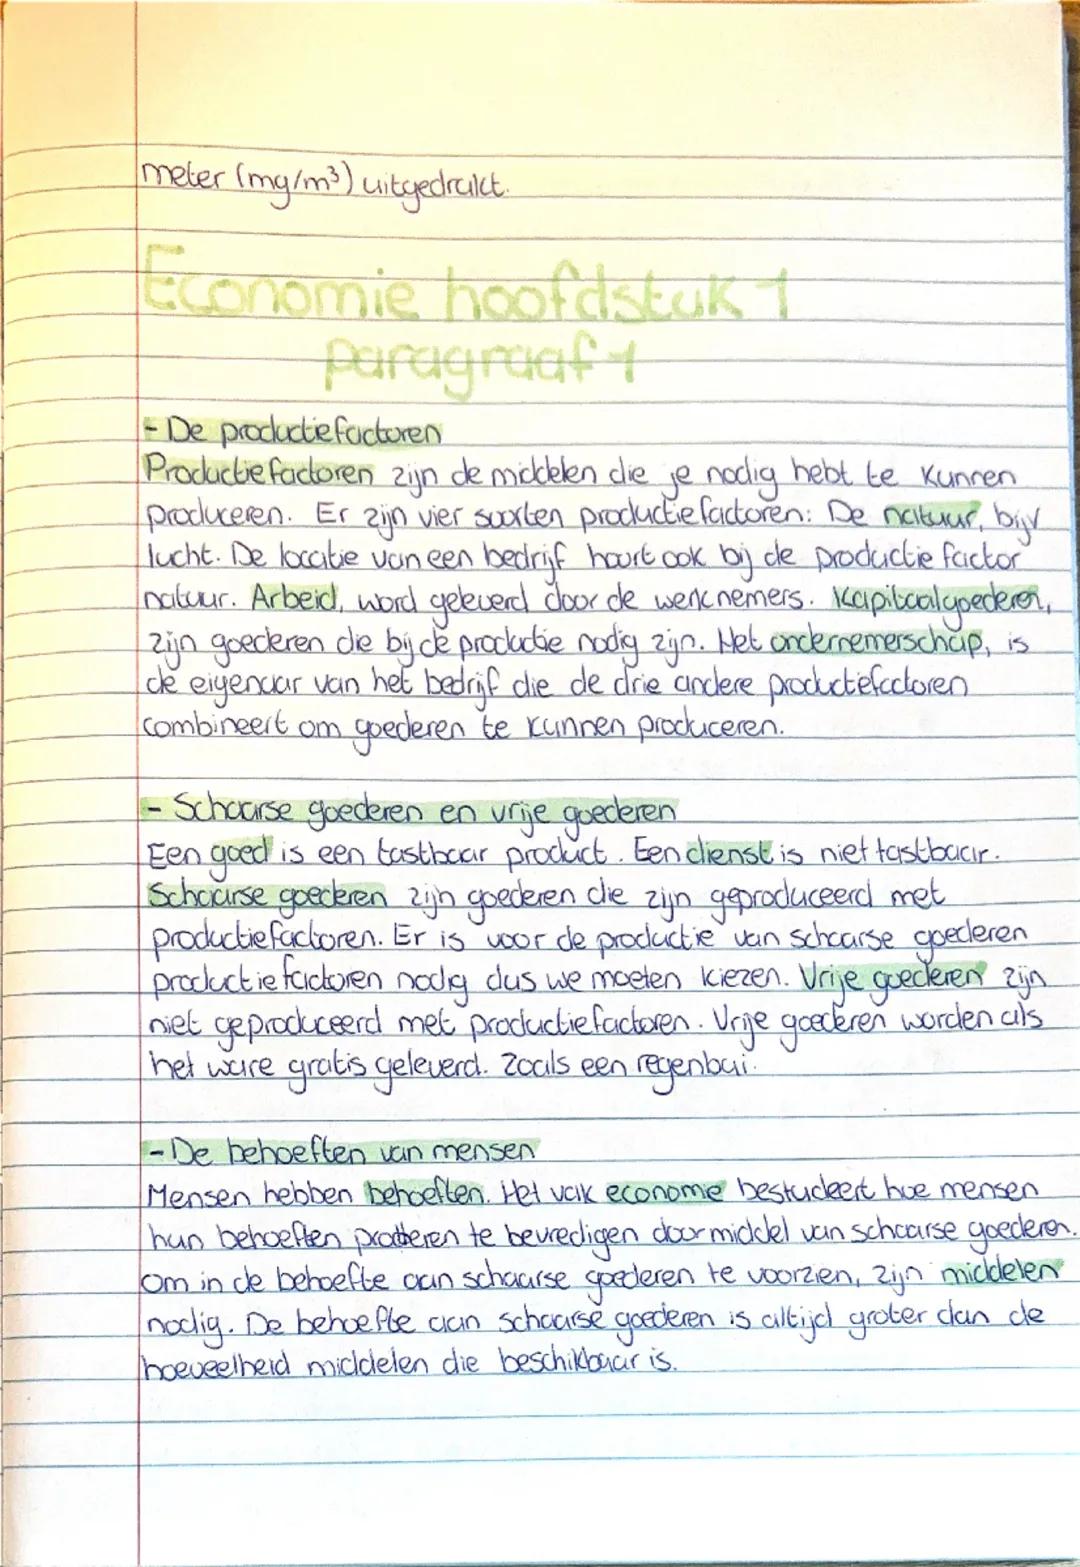 meter (mg/m³) uitgedrukt.
Economie hoofdstuk 1
paragraaf 1
- De productiefactoren
Productiefactoren zijn de middelen die je nodig hebt te kunnen
produceren. Er zijn vier soorten productiefactoren: De natuur, bijv
lucht. De locatie van een bedrijf hoort ook bij de productie factor
natuur. Arbeid, word geleverd door de werknemers. Kapitaalgoederen,
zijn goederen die bij de productie nodig zijn. Het ondernemerschap, is
de eigenaar van het bedrijf die de drie andere productiefactoren
combineert om goederen te kunnen produceren.
- Schaarse goederen en vrije goederen
Een goed is een tastbaar product. Een dienst is niet tastbaar.
Schaarse goederen zijn goederen die zijn geproduceerd met
productiefactoren. Er is voor de productie van schaarse goederen
productiefactoren nodig dus we moeten kiezen. Vrije goederen zijn
niet geproduceerd met productiefactoren. Vrije goederen worden als
het ware gratis geleverd. Zoals een regenbui.
- De behoeften van mensen
Mensen hebben behoeften. Het vak economie bestudeert hoe mensen
hun behoeften proberen te bevredigen door middel van schaarse goederen.
om in de behoefte aan schaarse goederen te voorzien, zijn middelen
nodig. De behoefte aan schaarse goederen is altijd groter dan de
hoeveelheid middelen die beschikbaar is.